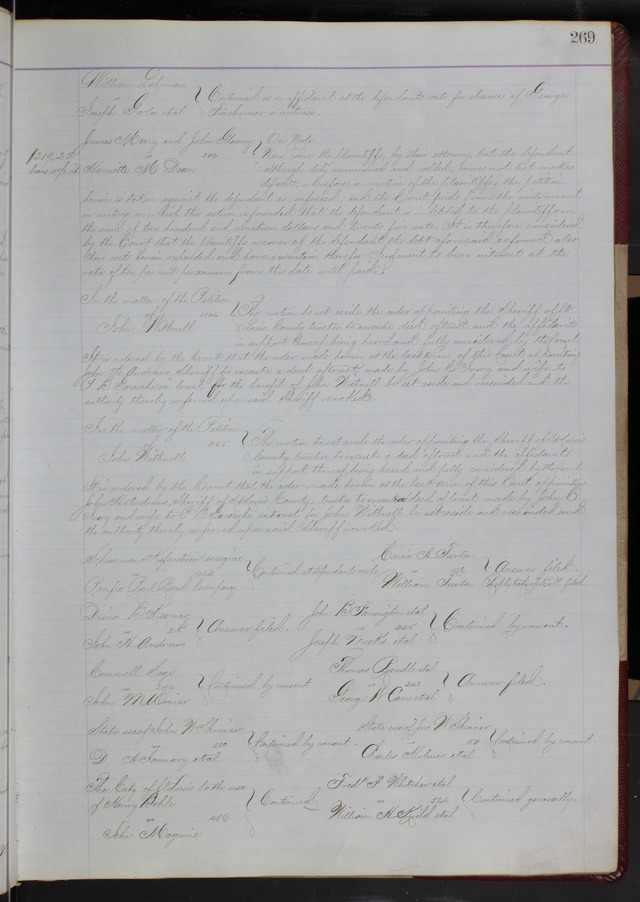 269
William Lehman
vs
Joseph Foster et al
Continued on affidavit at the defendants costs for absence of George
a witness.
James Meecy and John
vs
Harriette M. Dean
On Note
$219.25
Now come the plaintiffs, by their attorney, but the defendant
although duly summoned and called, comes not but makes
default, wherefore, on motion of the plaintiffs, the petition
herein is taken against the defendant as confessed, and the Court finds from the instrument
in writing on which the action is founded that the defendant is indebted to the plaintiffs in
the sum of two hundred and nineteen dollars and twenty five cents. It is therefore considered
by the Court that the plaintiffs recover of the defendant the debt aforesaid as found, also
their costs herein expended and have execution therefor. Judgment to bear interest at the
rate of ten per cent per annum from this date until paid.
In the matter of the Petition
of
John Withnell
1124
The motion to set aside the order appointing the Sheriff of St
Louis County trustee to execute deed of trust and the affidavits
in support thereof being heard and fully considered by the Court
It is ordered by the Court that the order made herein at the last term of this Court appointing
John H. Andrews Sheriff to execute a deed of trust, made by John C. Ivory and wife to
P. B. in trust for the benefit of John Withnell be set aside and rescinded and the
authority thereby conferred upon said Sheriff revoked.
In the matter of the Petition
of
John Withnell
1125
The motion to set aside the order appointing the Sheriff of St Louis
County trustee to execute a deed of trust and the affidavits
in support thereof being heard and fully considered by the Court
It is ordered by the Court that the order made herein at the last term of this Court appointing
John H. Andrews, Sheriff of St Louis County, trustee to execute a deed of trust made by John C
Ivory and wife to P. B. in trust for John Withnell be set aside and rescinded and
the authority thereby conferred upon said Sheriff revoked.
assignee
vs
Pacific Rail Road Company
Continued at defendants costs
Carrie H. Fenton
vs
William Fenton
Answer filed.
filed
Diana B. Kenney
vs
John H. Andrews
Answer filed.
John B. Pennington et al
vs 225
Joseph et al
Continued by consent.
Cromwell Sage
vs 234
John M. Wimer
Continued by consent
Thomas Randle et al
vs
George W. Carr et al
Answer filed.
State use of John W Skinner
vs
D. H. January et al
Continued by consent.
State use of Jno W Skinner
vs
Charles Holmes et al
Continued by consent
The City of St Louis to the use
of Henry Bohle
vs 426
John Maguire
Continued
Fredk. F. Whitcher et al
vs
William H. et al
Continued generally.